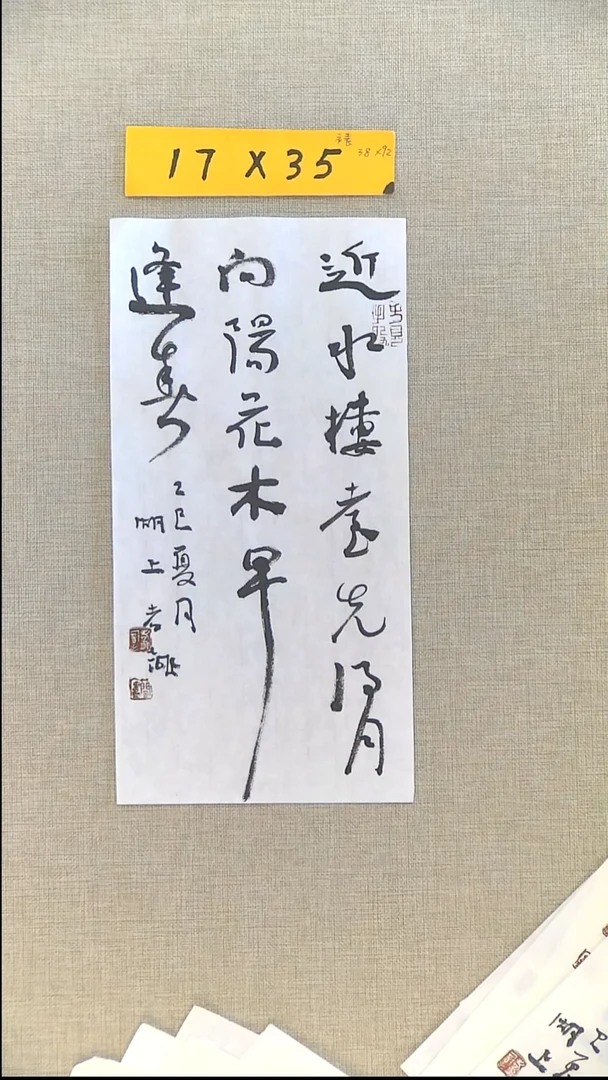 17 X 35
38 X 92
近水樓臺先得月
向陽花木早
逢春
乙巳夏月
湖上老